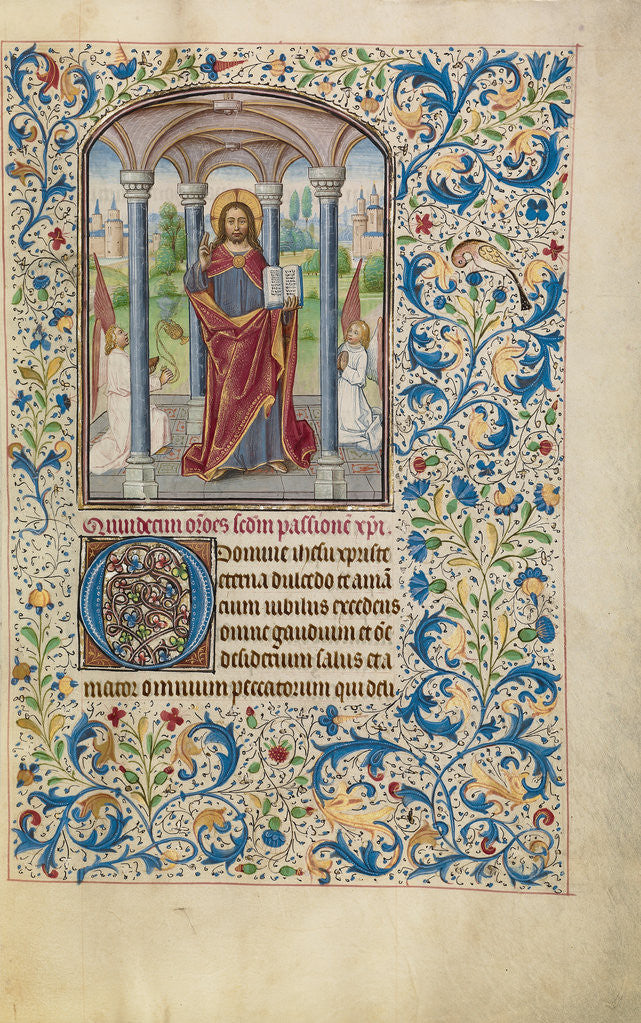 Quindecim or̄oēs scdm̄ passionē xpi.
O Domine ihesu xpriste
eterna dulcedo et amā
cium iubilus excedens
omne gaudium et oē
desiderium salus et a
mator omnium peccatorum qui deli